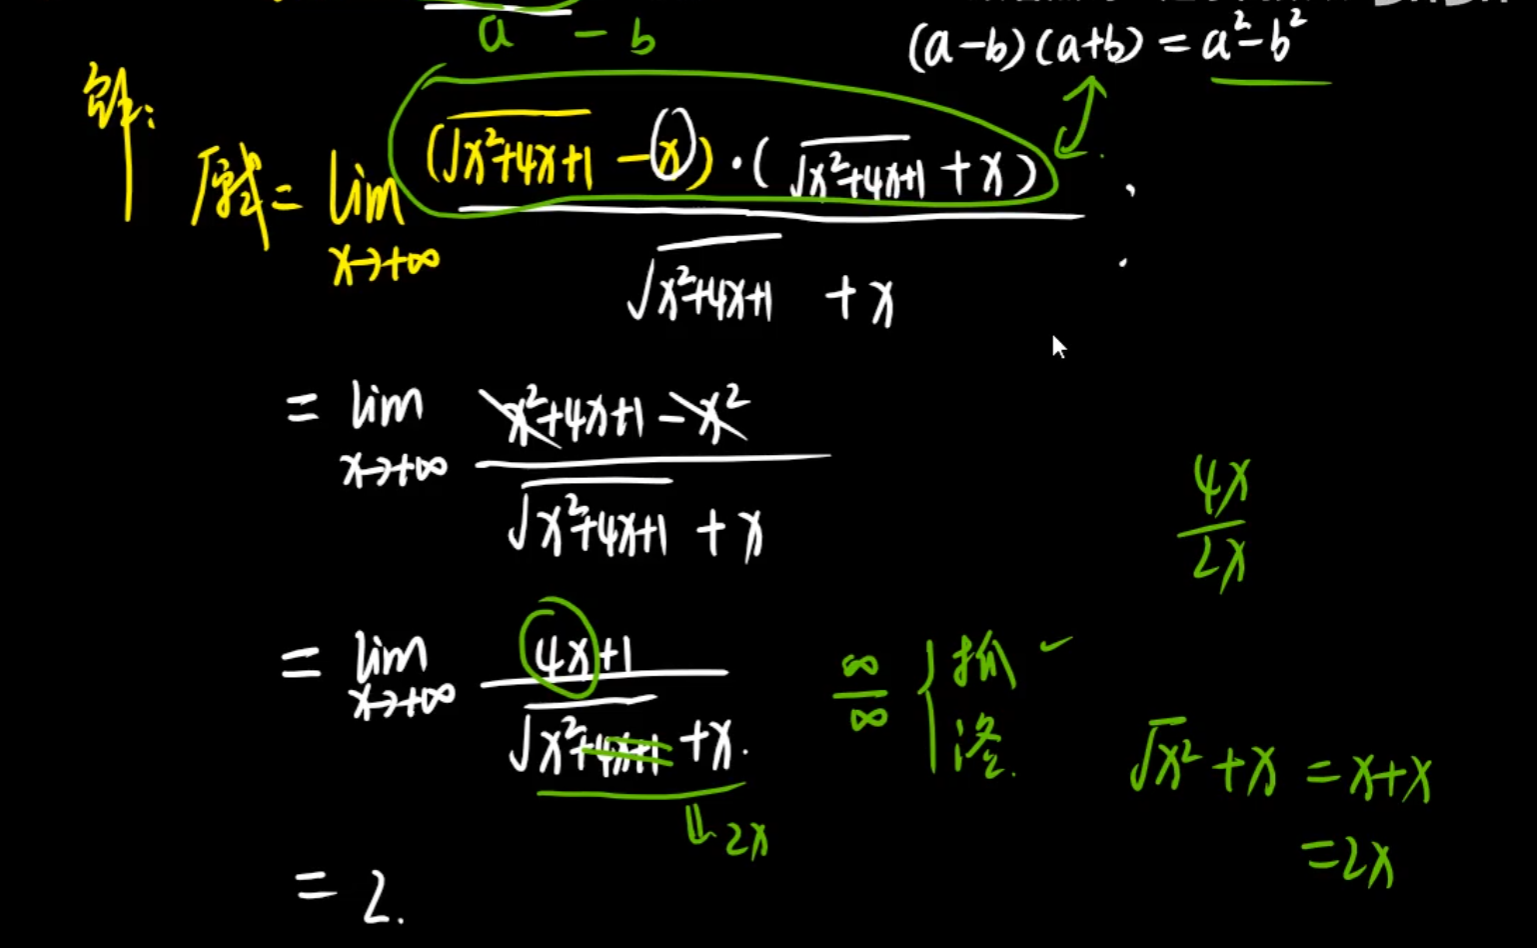 a - b
(a-b)(a+b) = a²-b²
解:
原式 = lim x→+∞ (√(x²+4x+1) - x)·(√(x²+4x+1) + x) / (√(x²+4x+1) + x)
= lim x→+∞ (x²+4x+1-x²) / (√(x²+4x+1) + x)
4x/2x
= lim x→+∞ (4x+1) / (√(x²+4x+1) + x)
∞/∞ { 抓 ✓
洛.
⇓ 2x
√x² + x = x+x
= 2x
= 2.